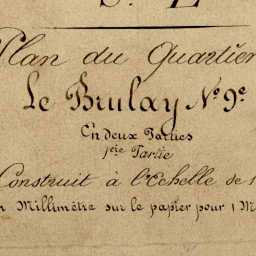 Plan du Quartier
Le Brulay N.º 9.e
En deux Parties
1ère Partie
Construit à l'Echelle de 1
Millimètre sur le papier pour 1 M